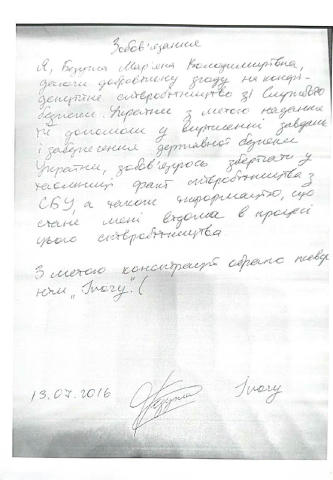 Зобов'язання
Я, Безугла Мар'яна Володимирівна,
даючи добровільну згоду на конфі-
денційне співробітництво зі Службою
безпеки України з метою надання
їй допомоги у вирішенні завдань
і забезпечення державної безпеки
України, зобов'язуюсь зберігати у
таємниці факт співробітництва з
СБУ, а також інформацію, що
стане мені відома в процесі
цього співробітництва
З метою конспірації обираю псевдо-
нім „Ivory".
13.07.2016 Ivory